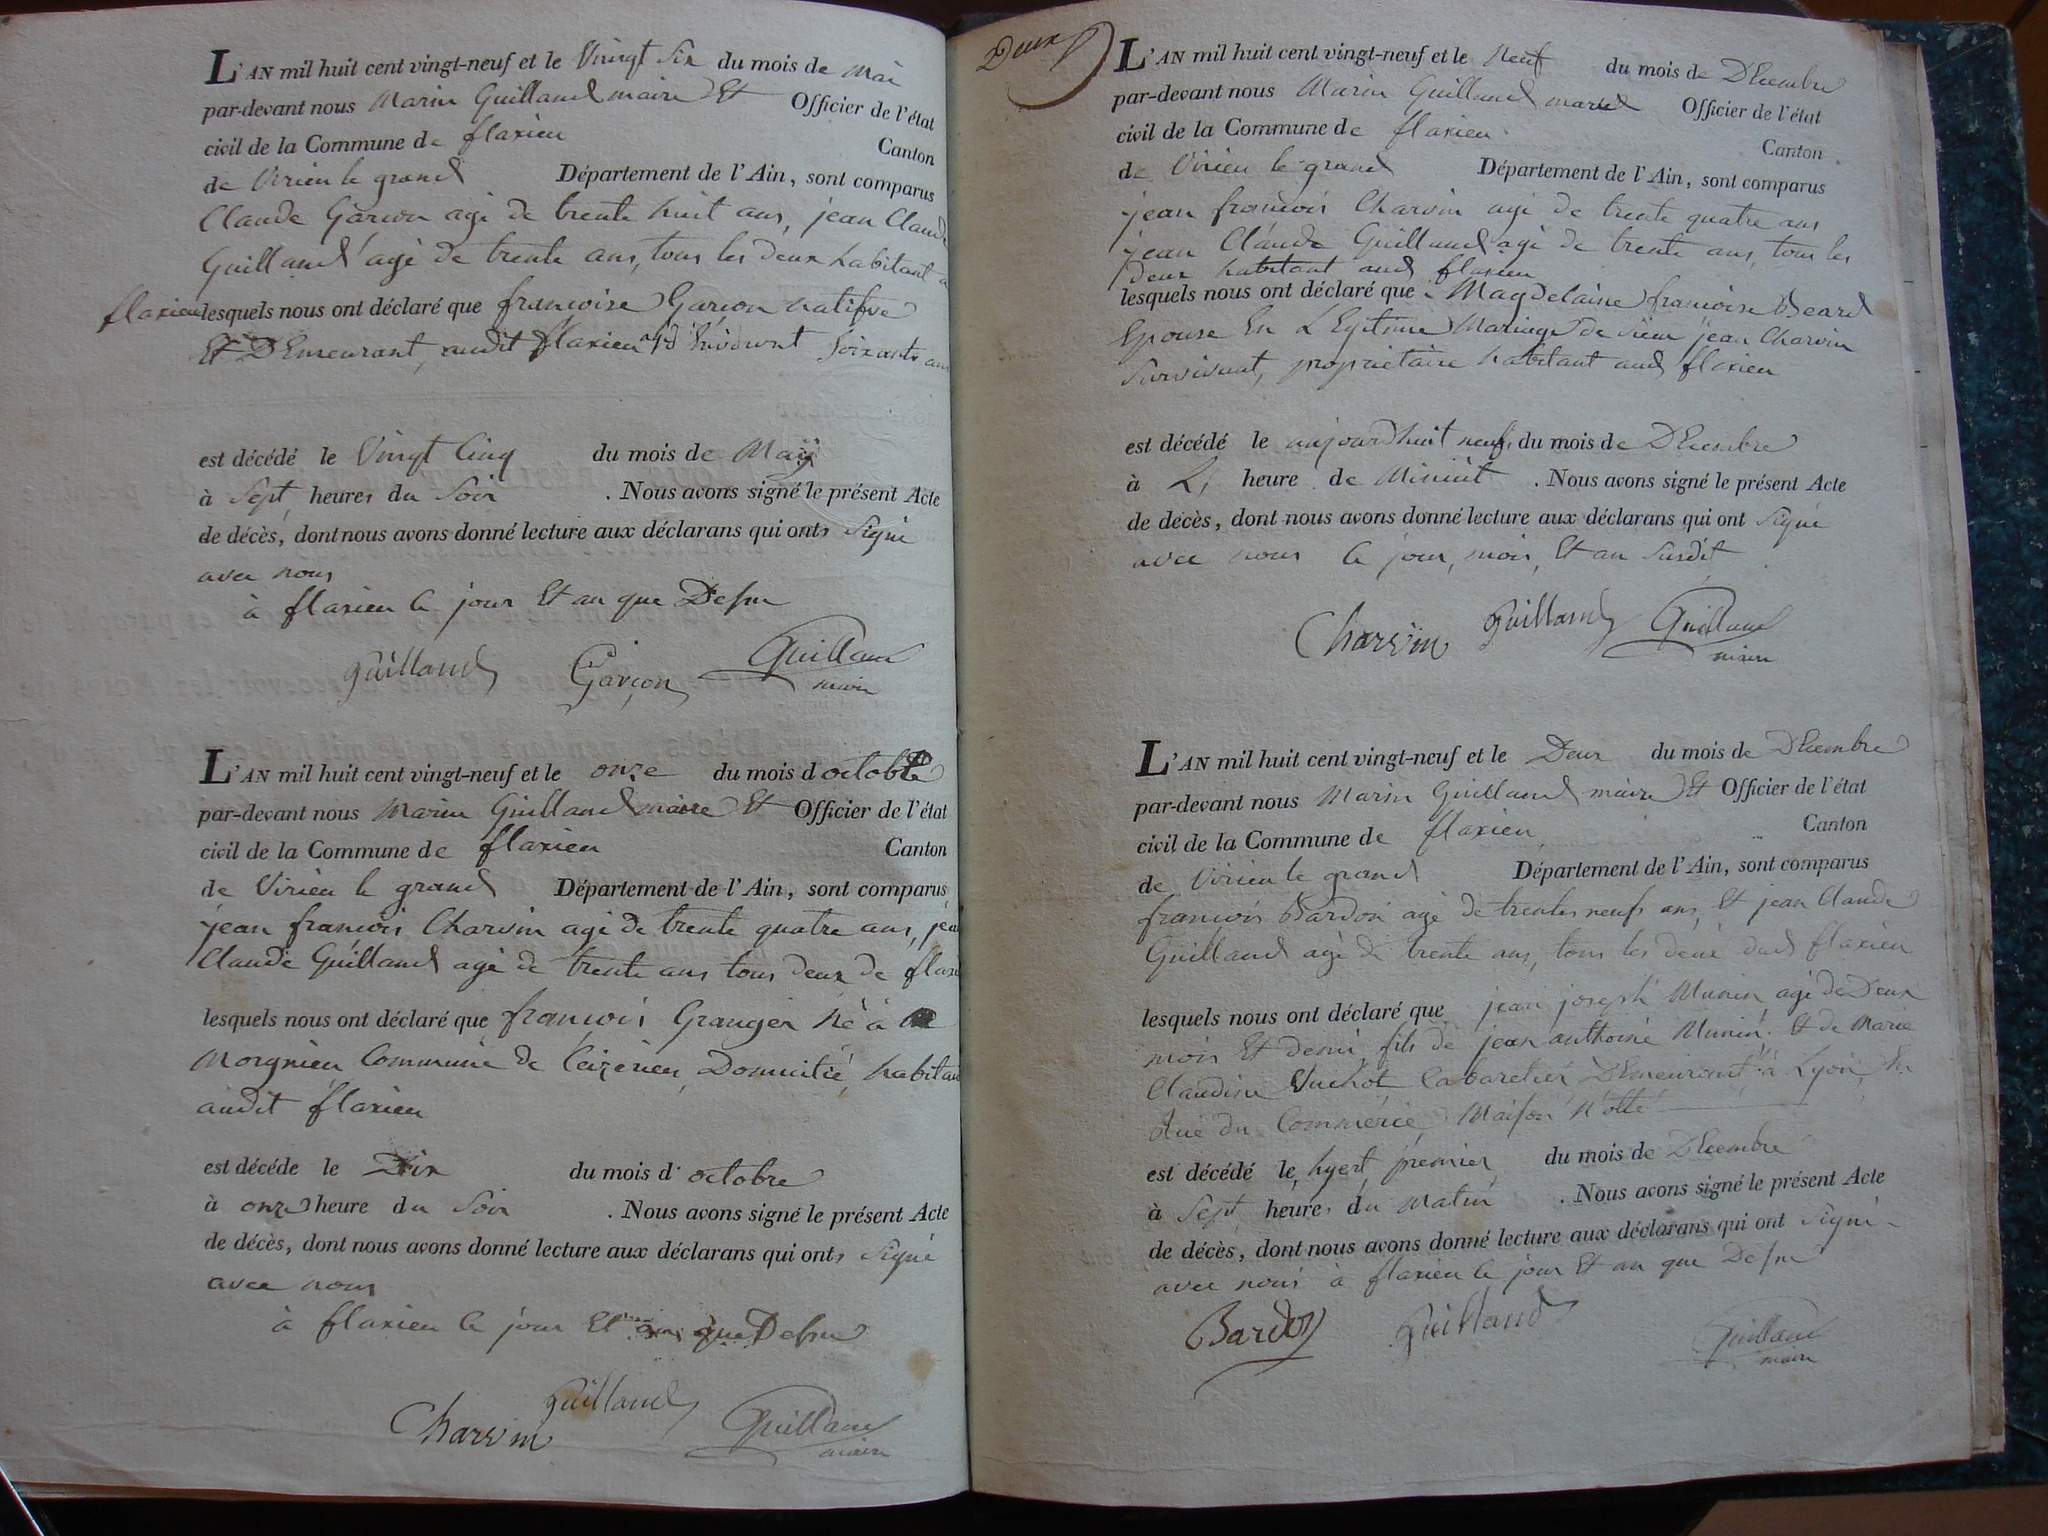 L'AN mil huit cent vingt-neuf et le Vingt Six du mois de mai
par-devant nous Marin Guilland maire Et Officier de l'état
civil de la Commune de flaxieu Canton
de Virieu le grand Département de l'Ain, sont comparus
Claude Garçon agé de trente huit ans, jean Claude
Guilland agé de trente ans, tous les deux habitant a
flaxieu lesquels nous ont déclaré que francoise Garçon natifve
Et DEmeurant, audit flaxieu soixante ans
est décédé le Vingt Cinq du mois de Maÿ
à Sept heures du Soir . Nous avons signé le présent Acte
de décès, dont nous avons donné lecture aux déclarans qui ont Signé
avec nous
à flaxieu le jour Et an que Dessu
Guilland Garçon Guilland
maire
L'AN mil huit cent vingt-neuf et le onze du mois d octobre
par-devant nous Marin Guilland maire Et Officier de l'état
civil de la Commune de flaxieu Canton
de Virieu le grand Département de l'Ain, sont comparus
jean francois Charvin agé de trente quatre ans, jean
Claude Guilland agé de trente ans tous deux de flaxi
lesquels nous ont déclaré que francois Granger né à
Morgnieu Commune de Ceizerieu, Domicilié, habitan
audit flaxieu
est décéde le Dix du mois d' octobre
à onze heure du Soir . Nous avons signé le présent Acte
de décès, dont nous avons donné lecture aux déclarans qui ont Signé
avec nous
à flaxieu le jour Et an que Dessu
Charvin Guilland Guilland
maire
Deux
L'AN mil huit cent vingt-neuf et le Neuf du mois de DEcembre
par-devant nous Marin Guilland maire Officier de l'état
civil de la Commune de flaxieu Canton
de Virieu le grand Département de l'Ain, sont comparus
jean francois Charvin agé de trente quatre ans
jean Claude Guilland agé de trente ans, tous les
deux habitant aud flaxieu
lesquels nous ont déclaré que Magdelaine francoise Beard
Epouse En LEgitime Mariage de sieur jean Charvin
Survivant, propriétaire habitant aud flaxieu
est décédé le aujourdhuit neuf du mois de DEcembre
à L, heure de Minuit . Nous avons signé le présent Acte
de décès, dont nous avons donné lecture aux déclarans qui ont Signé
avec nous le jour, mois, Et an Susdit
Charvin Guilland Guilland
maire
L'AN mil huit cent vingt-neuf et le Deux du mois de DEcembre
par-devant nous Marin Guilland maire Et Officier de l'état
civil de la Commune de flaxieu Canton
de Virieu le grand Département de l'Ain, sont comparus
francois Bardon agé de trentes neufs ans, Et jean Claude
Guilland agé de trente ans, tous les deux dud flaxieu
lesquels nous ont déclaré que jean joseph Munin agé de Deux
mois Et demi, fils de jean anthoine Munin Et de Marie
Claudine Vuchot Cabaretier DEmeurant à Lyon,
Rue du Commerce, Maison
est décédé le, hyert premier du mois de DEcembre
à Sept heures du Matin . Nous avons signé le présent Acte
de décès, dont nous avons donné lecture aux déclarans qui ont Signé
avec nous à flaxieu le jour Et an que Dessu
Bardon Guilland Guilland
maire